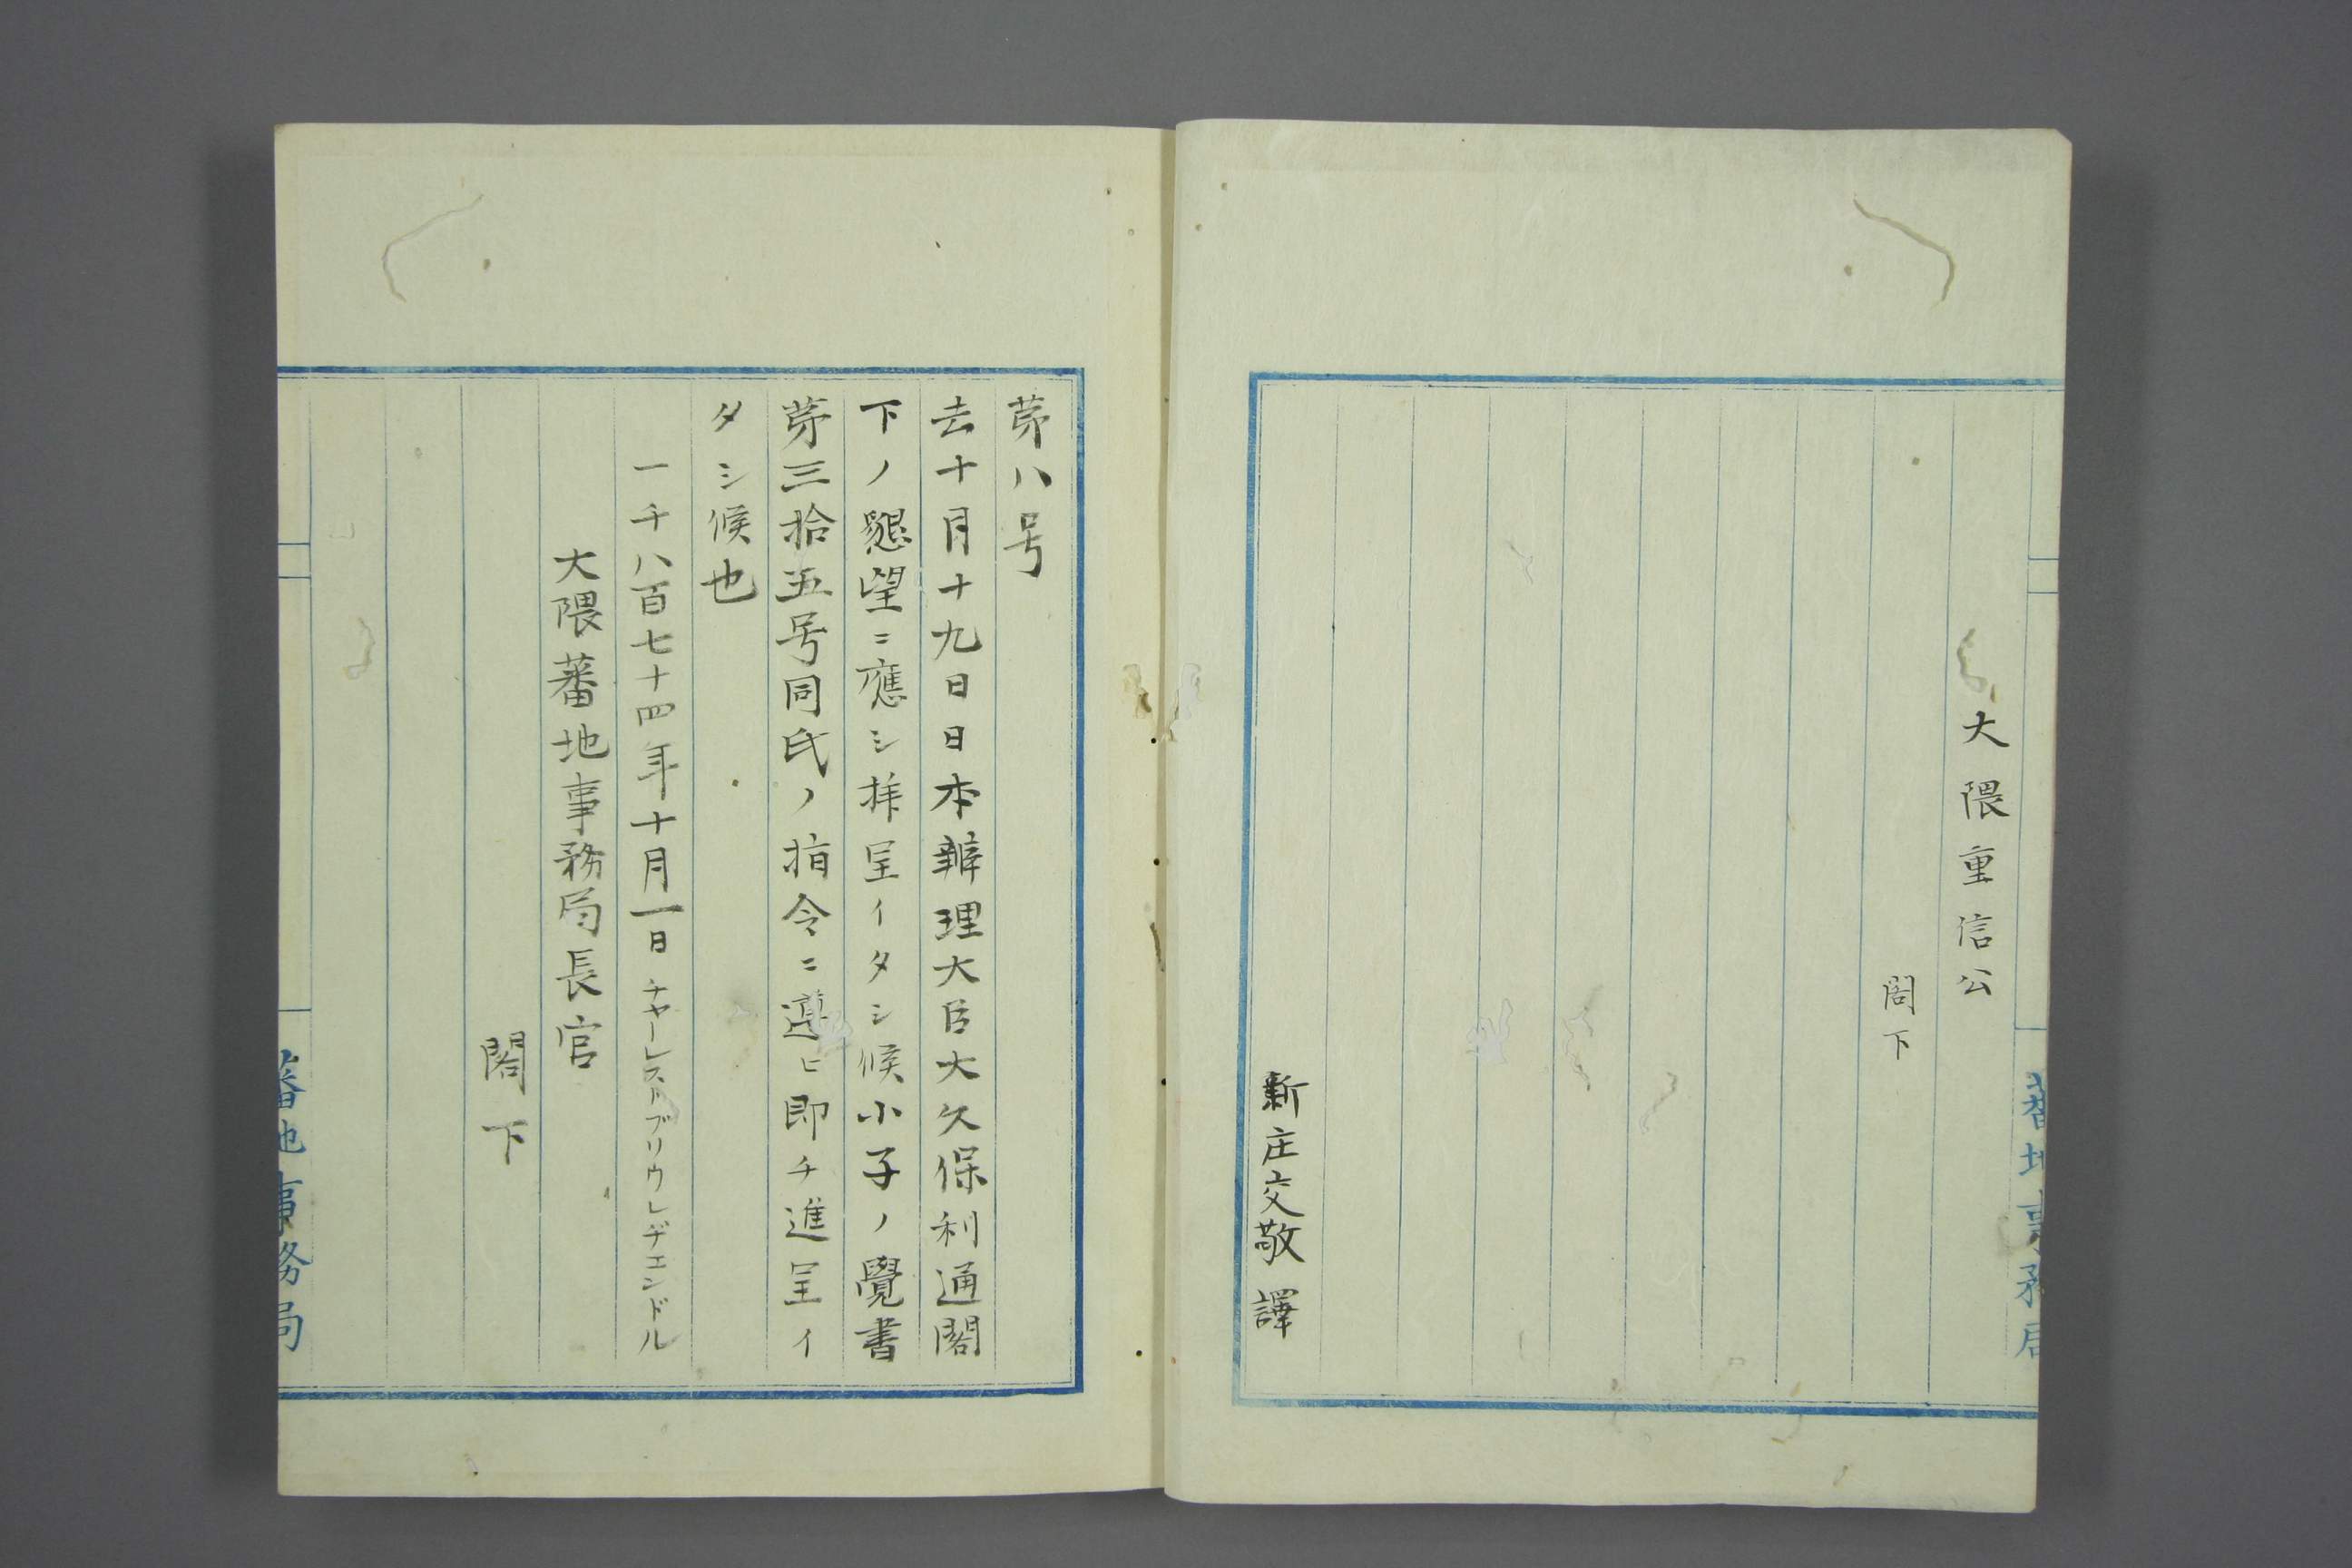 大隈重信公
閣下
新庄交敬譯
蕃地事務局
第八号
去十月十九日日本辦理大臣大久保利通閣
下ノ懇望ニ應シ拝呈イタシ候小子ノ覺書
第三拾五号同氏ノ指令ニ遵ヒ即チ進呈イ
タシ候也
一千八百七十四年十月一日チャーレストブリウレヂエンドル
大隈蕃地事務局長官
閣下
蕃地事務局